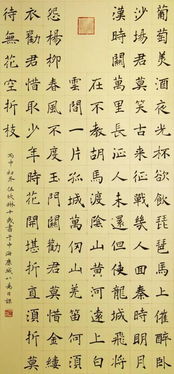 葡萄美酒夜光杯欲飲琵琶馬上催醉臥
沙場君莫笑古來征戰幾人回秦時明月
漢時關萬里長征人未還但使龍城飛將
在不教胡馬度陰山黃河遠上白
雲間一片孤城萬仞山羌笛何須
怨楊柳春風不度玉門關勸君莫惜金縷
衣勸君惜取少年時花開堪折直須折莫
待無花空折枝
丙申初冬伍琳十歲書于中海康城以為日課